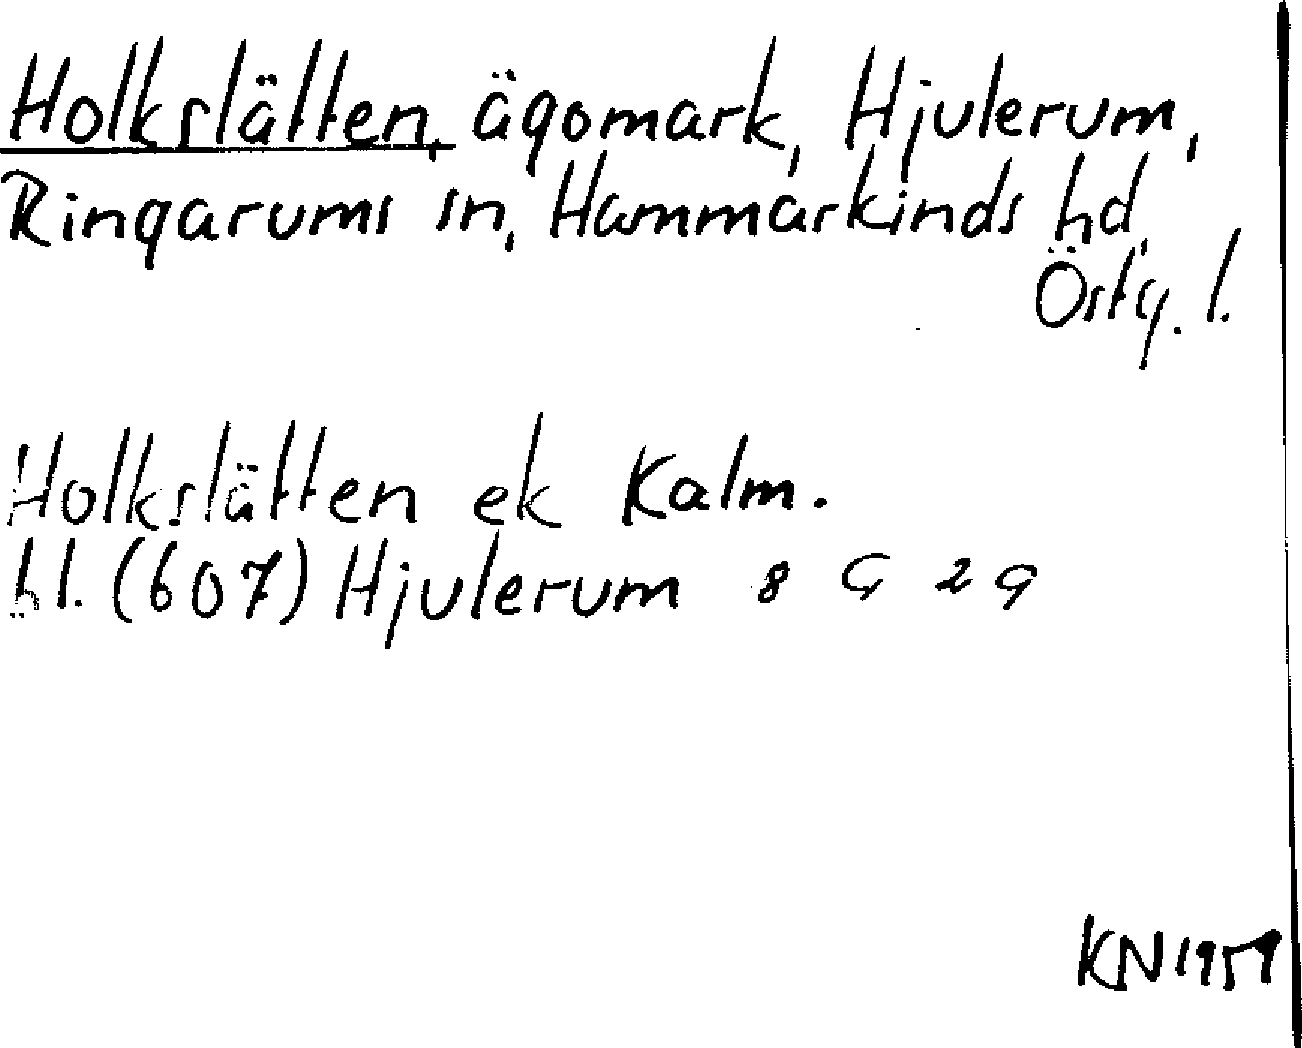 Holkslätten, ägomark, Hjulerum,
Ringarums sn, Hammarkinds hd,
Östg. l.
Holkslätten ek Kalm.
bl. (607) Hjulerum 8 G 2 g
KN 1959